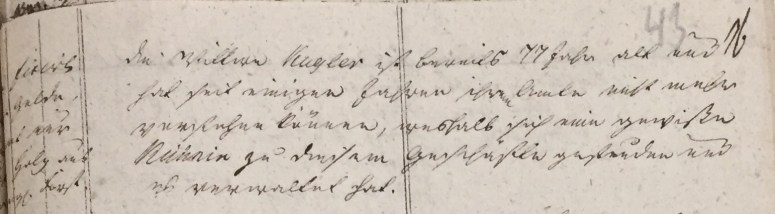 43
die Wittwe Kugler ist bereits 77 Jahr alt und
hat seit einigen Jahren ihrem Amte nicht mehr
vorstehen können, weshalb sich eine gewisse
zu diesem Geschäfte gefunden und
es verwaltet hat.